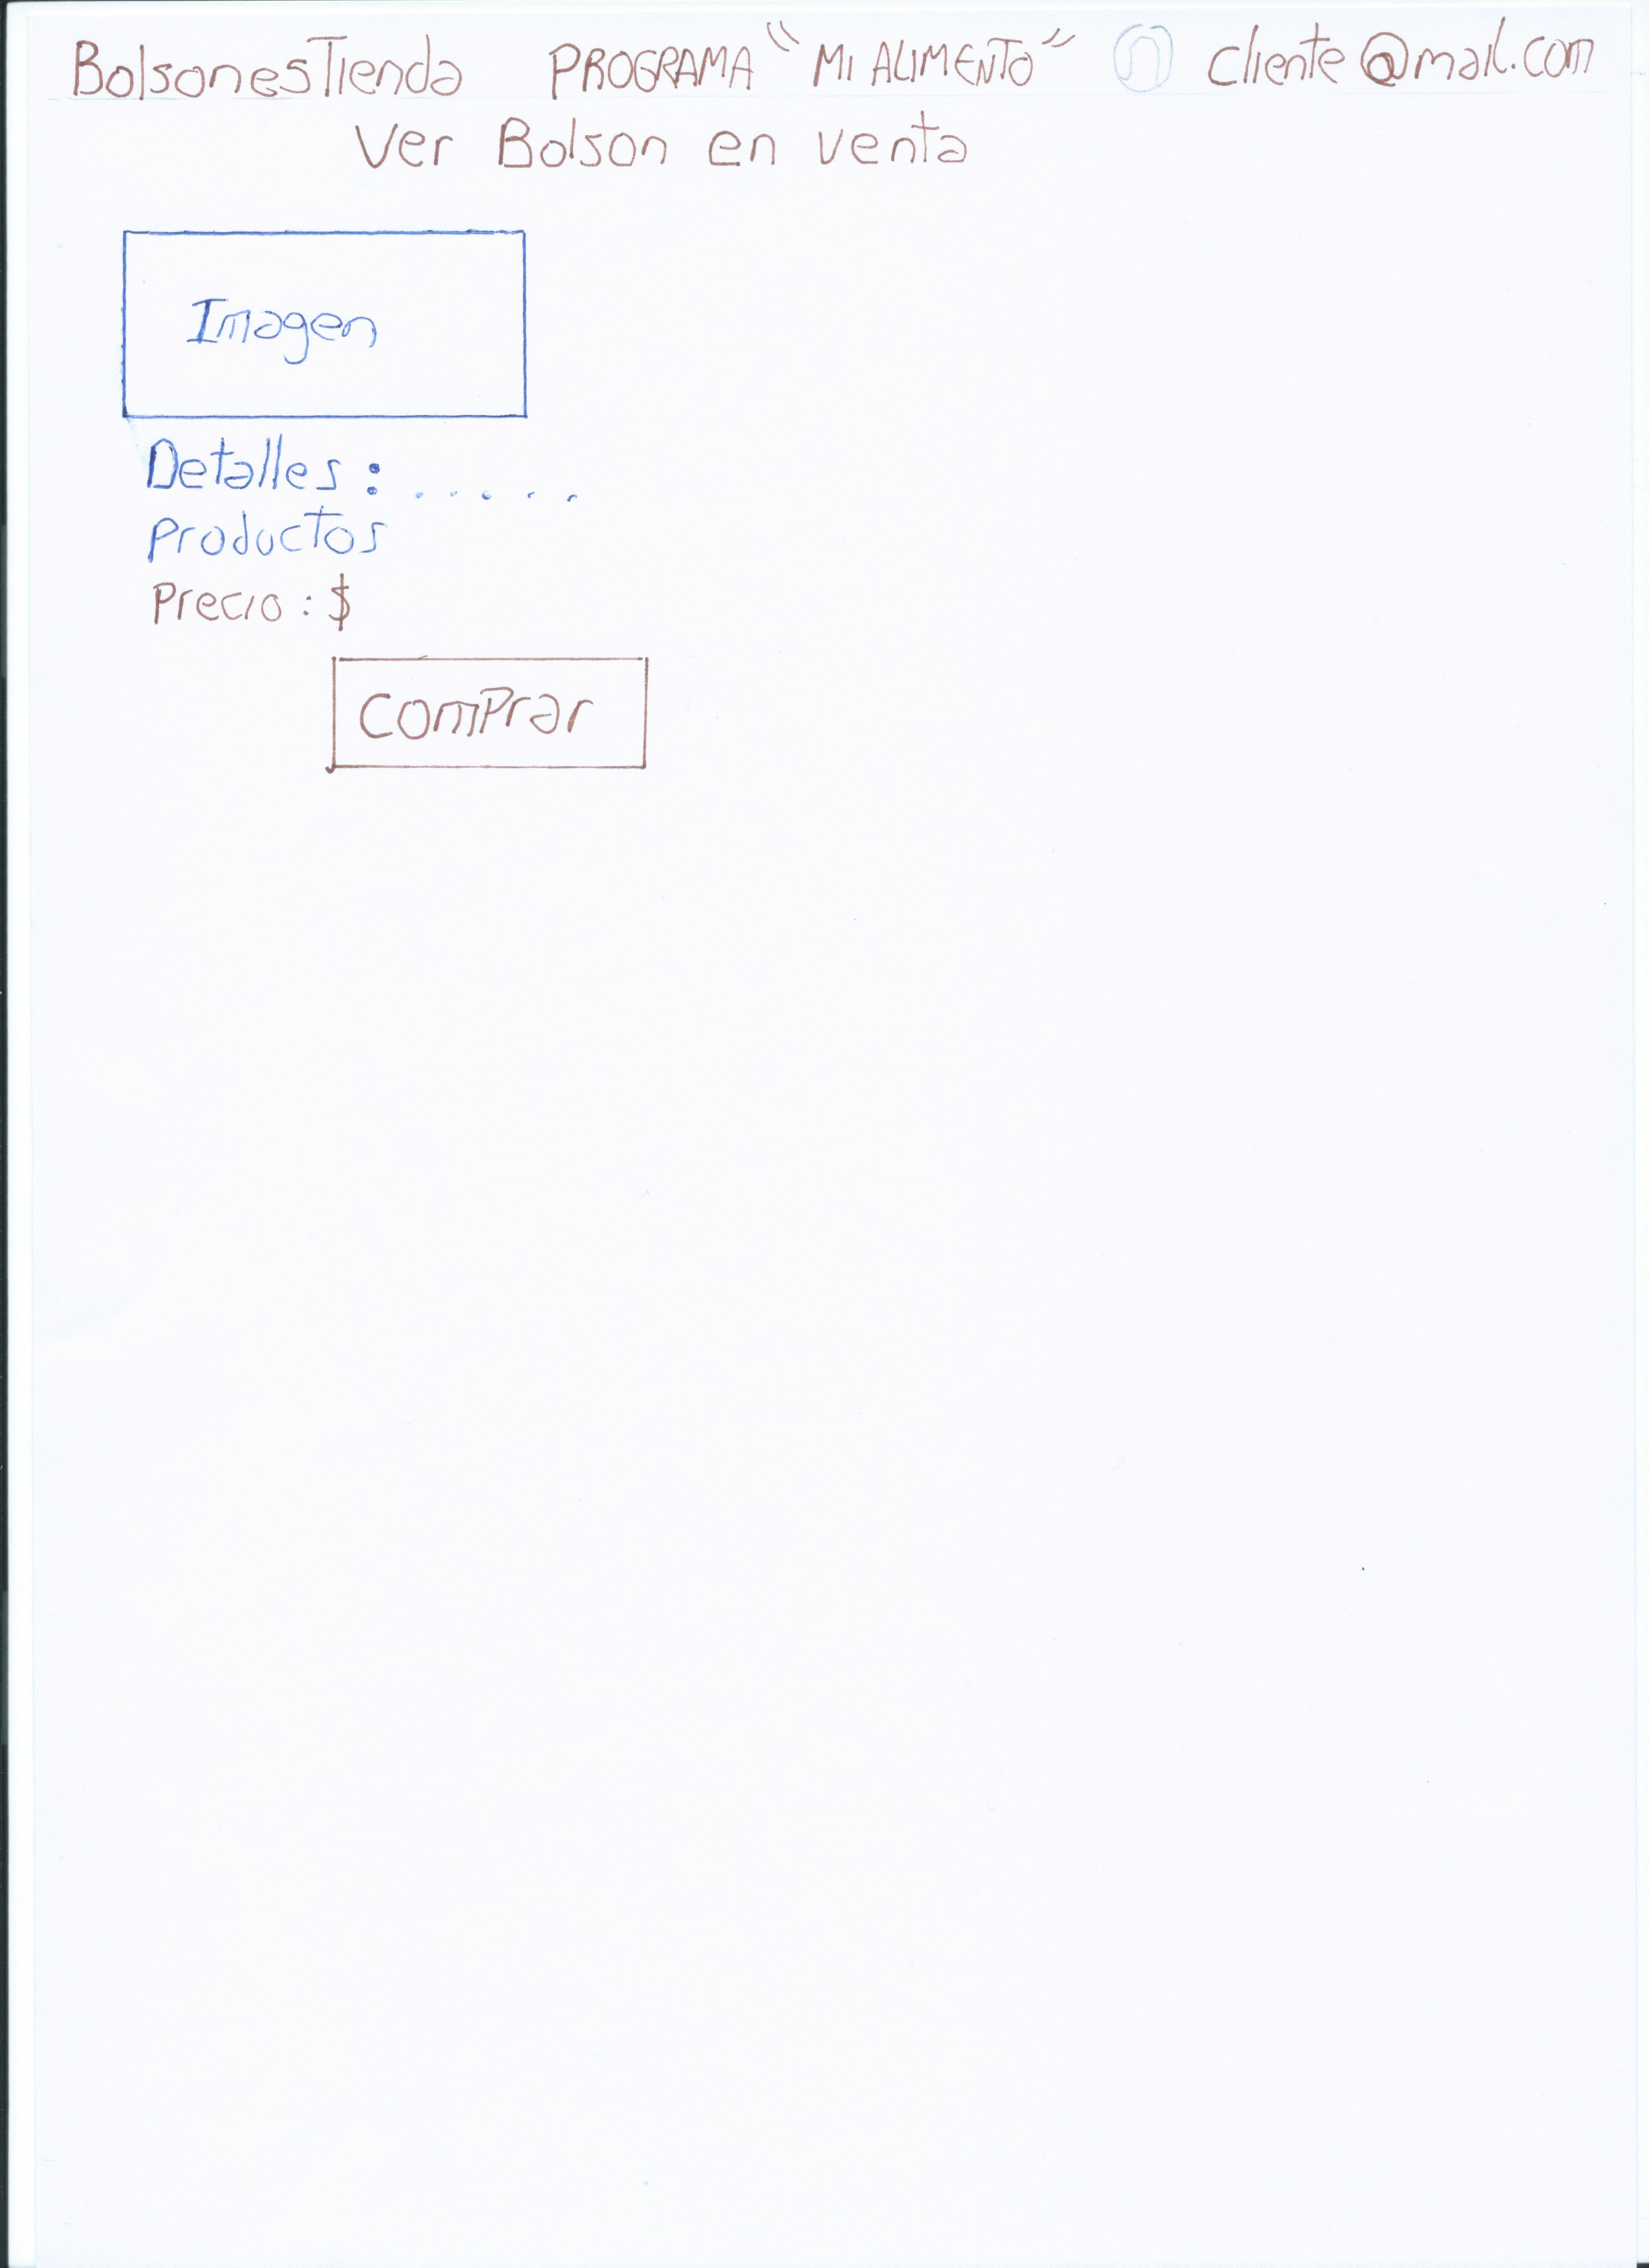 BolsonesTienda PROGRAMA "MI ALIMENTO" cliente@mail.com
Ver Bolson en venta
Imagen
Detalles : . . . . .
Productos
Precio : $
Comprar